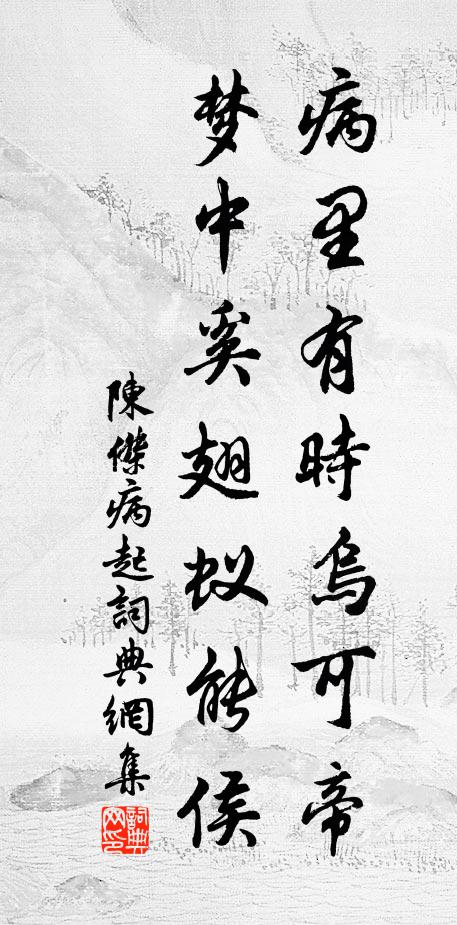 病里有時烏可帝
梦中奚翅蚁能侯
陳傑病起詞典網集
詞典网印